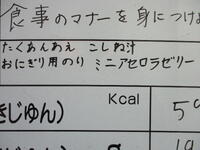 食事のマナーを身につけ
たくあんあえ こしね汁
おにぎり用のり ミニアセロラゼリー
Kcal
きじゅん)